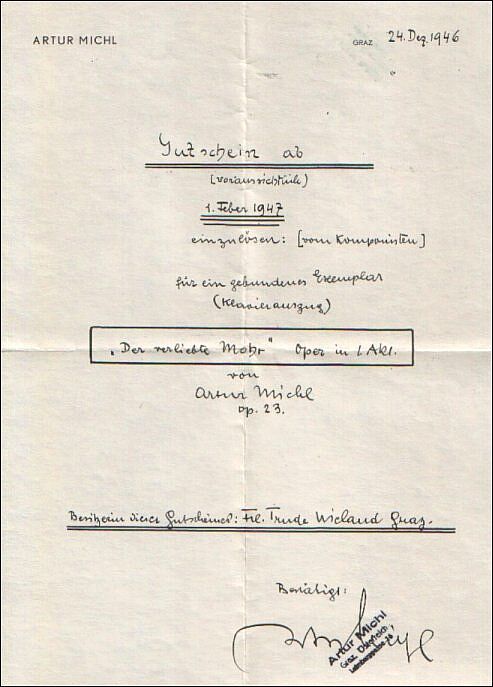 ARTUR MICHL
GRAZ 24. Dez. 1946
Gutschein ab
(voraussichtlich)
1. Feber 1947
einzulösen: [vom Komponisten]
für ein gebundenes Exemplar
(Klavierauszug)
"Der verliebte Mohr" Oper in 1 Akt.
von
Artur Michl
op. 23.
Besitzerin dieses Gutscheines: Frl. Trude Wieland Graz.
Bestätigt:
Artur Michl
Graz